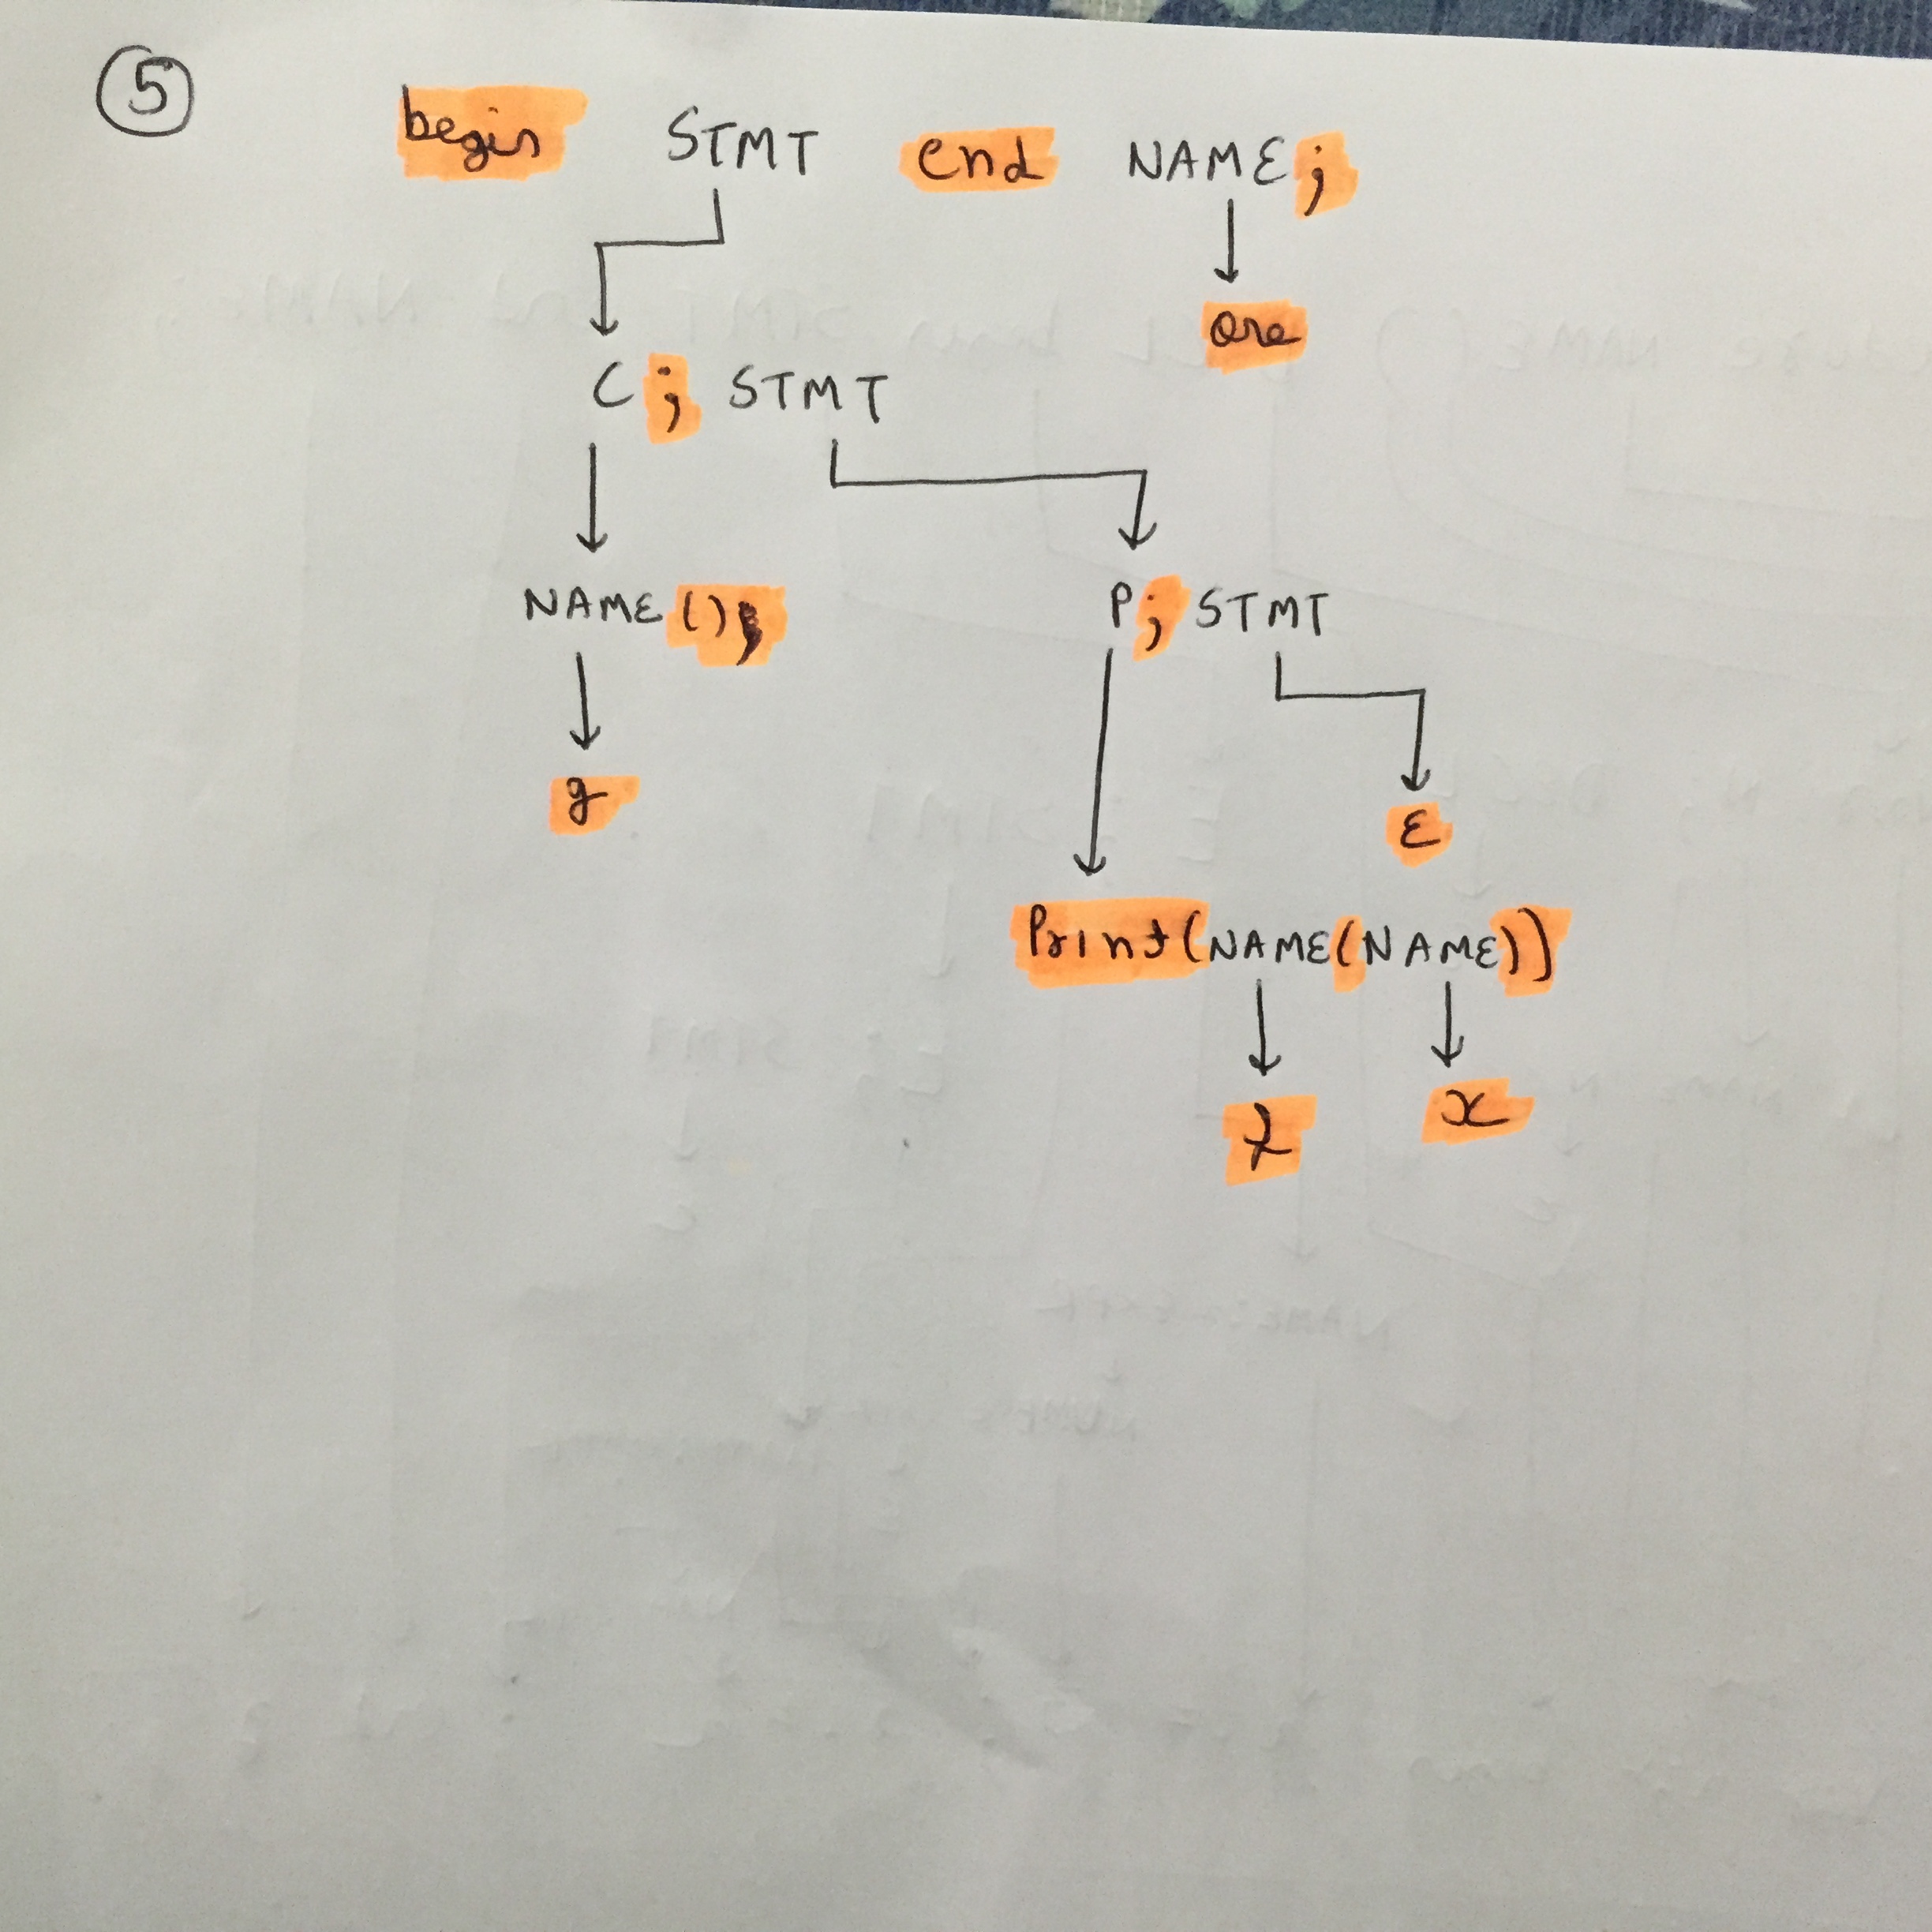 5 begin STMT end NAME;
one
C ; STMT
NAME() P; STMT
g ε
Print(NAME(NAME))
x